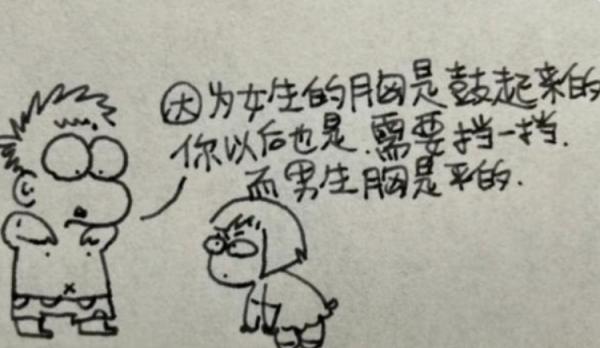 因为女生的胸是鼓起来的
你以后也是.需要挡一挡.
而男生胸是平的.